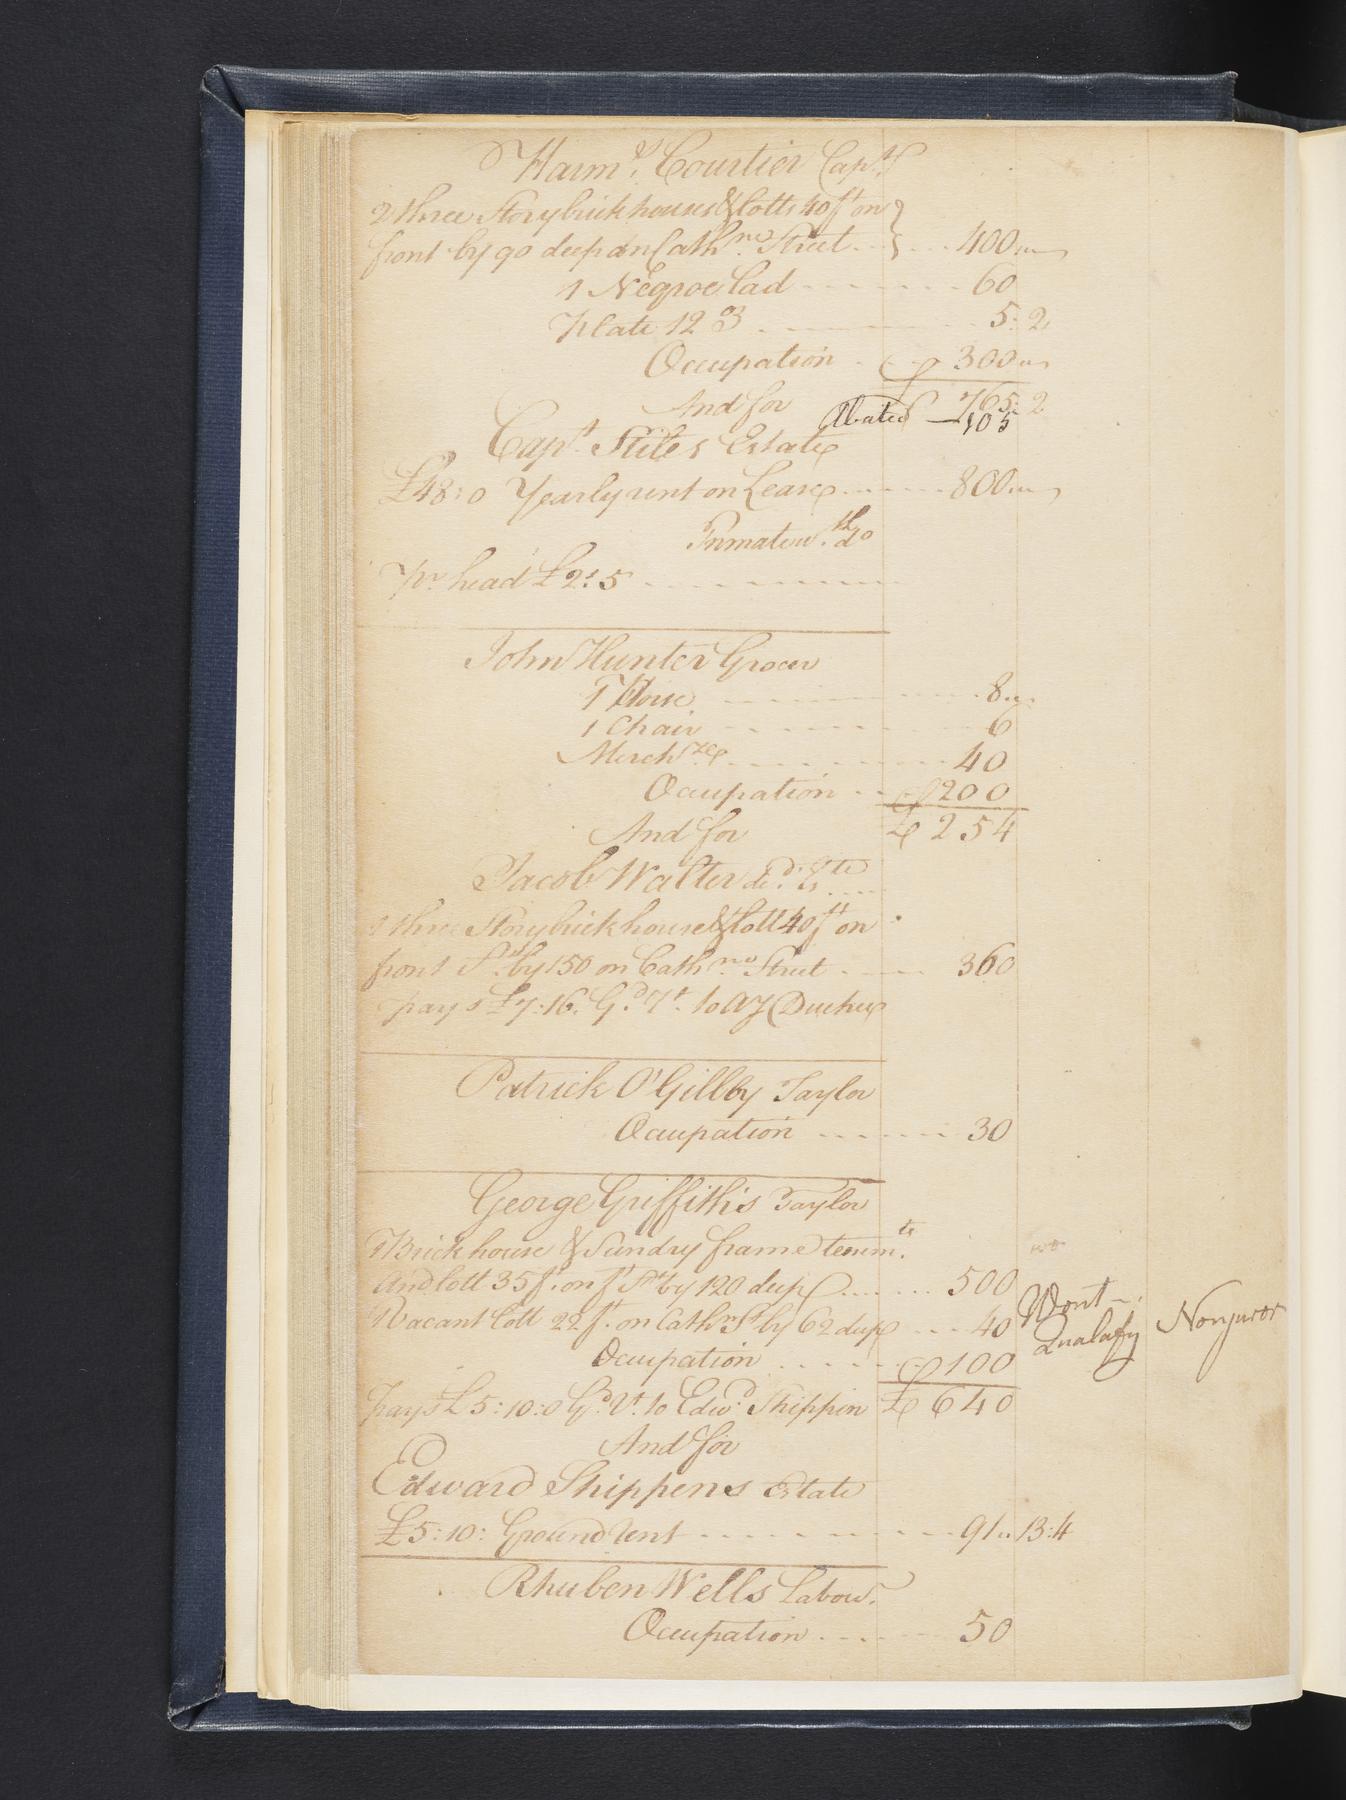 Harm.s Courtier Capt.
2 three Story brick houses & lotts 40 ft on
front by 90 deep on Cathne. Street 400
1 Negroe lad 60
Plate 12 ℥ 5:2
Occupation 300
765:2
And for Abated 105
Capt. Stiles Estate
£48:0 Yearly rent on Lease 800
Inmate wth. do
Pr. head £2:5
John Hunter Grocer
1 Horse 8
1 Chair 6
Merchze. 40
Occupation 200
And for £254
Jacob Walter decd. Este
1 three Story brick house & lott 40 ft on
front St. by 150 on Cathne. Street 360
pays £7:16. Gd. rt. to
Patrick O'Gillby Taylor
Occupation 30
George Griffith's Taylor
1 Brick house & Sundry frame tenemts.
And lott 35 ft. on ft. St. by 120 deep 500
Vacant lott 22 ft. on Cathn St. by 62 deep 40 Wont Qualafy Nonjuror
Occupation 100
pays £5:10:0 Gd. Rt. to Edwd. Shippin £640
And for
Edward Shippens Estate
£5:10: Ground rent 91..13:4
Rhuben Wells Labour.
Occupation 50